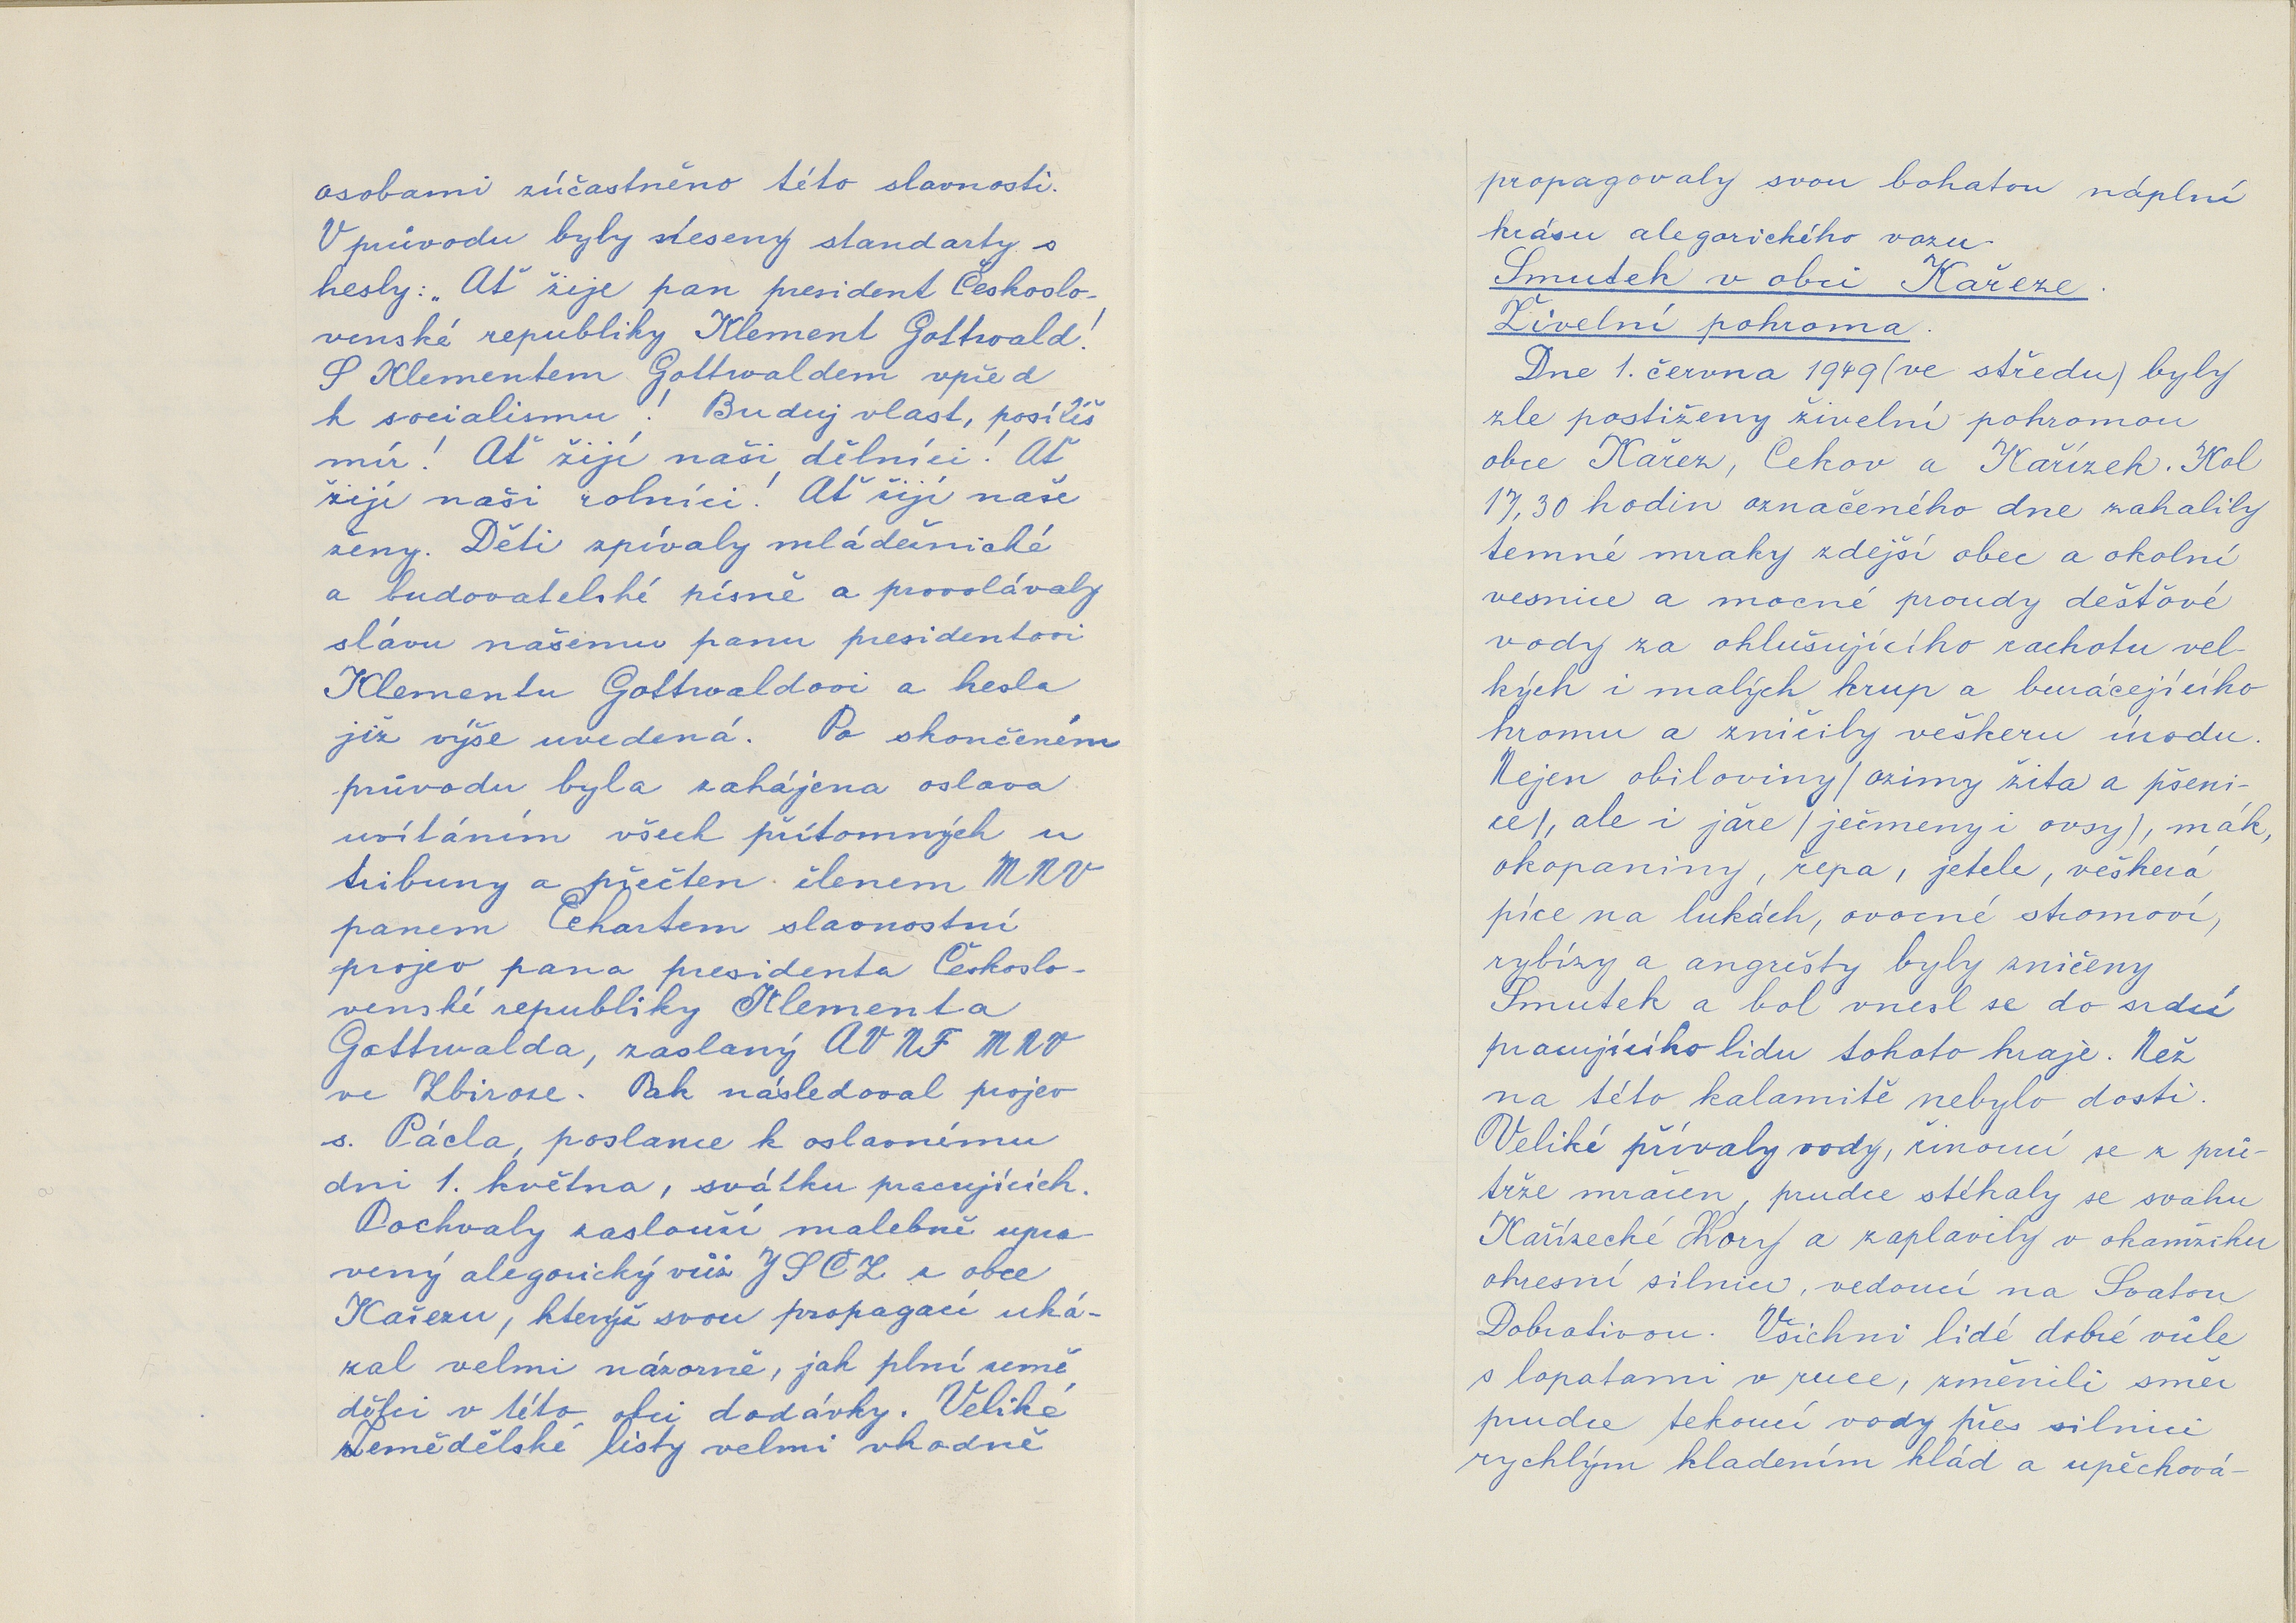 osobami zúčastněno této slavnosti.
V průvodu byly neseny standarty s
hesly: „Ať žije pan president Českoslo-
venské republiky Klement Gottwald!
S Klementem Gottwaldem vpřed
k socialismu! Buduj vlast, posílíš
mír! Ať žijí naši dělníci! Ať
žijí naši rolníci! Ať žijí naše
ženy. Děti zpívaly mládežnické
a budovatelské písně a provolávaly
slávu našemu panu presidentovi
Klementu Gottwaldovi a hesla
již výše uvedená. Po skončeném
průvodu byla zahájena oslava
uvítáním všech přítomných u
tribuny a přečten členem MNV
panem Echartem slavnostní
projev pana presidenta Českoslo-
venské republiky Klementa
Gottwalda, zaslaný AV NF MNV
ve Zbiroze. Pak následoval projev
s. Pácla, poslance k oslavnému
dni 1. května, svátku pracujících.
Pochvaly zaslouží malebně upra-
vený alegorický vůz JSČZ z obce
Kařezu, kterýž svou propagací uká-
zal velmi názorně, jak plní země
dělci v této obci dodávky. Veliké
Zemědělské listy velmi vhodně
propagovaly svou bohatou náplní
krásu alegorického vozu.
Smutek v obci Kařeze.
Živelní pohroma.
Dne 1. června 1949 (ve středu) byly
zle postiženy živelní pohromou
obce Kařez, Cekov a Kařízek. Kol
17,30 hodin označeného dne zahalily
temné mraky zdejší obec a okolní
vesnice a mocné proudy dešťové
vody za ohlušujícího rachotu vel-
kých i malých krup a burácejícího
hromu a zničily veškeru úrodu.
Nejen obiloviny (ozimy žita a pšeni-
ce), ale i jaře (ječmeny i ovsy), mák,
okopaniny, řepa, jetele, veškerá
píce na lukách, ovocné stromoví,
rybízy a angrešty byly zničeny
Smutek a bol vnesl se do srdcí
pracujícího lidu tohoto kraje. Než
na této kalamitě nebylo dosti.
Veliké přívaly vody, řinoucí se z prů-
trže mračen, prudce stékaly se svahu
Kařízecké Hory a zaplavily v okamžiku
okresní silnici, vedoucí na Svatou
Dobrotivou. Všichni lidé dobré vůle
s lopatami v ruce, změnili směr
prudce tekoucí vody přes silnici
rychlým kladením klád a upěchová-